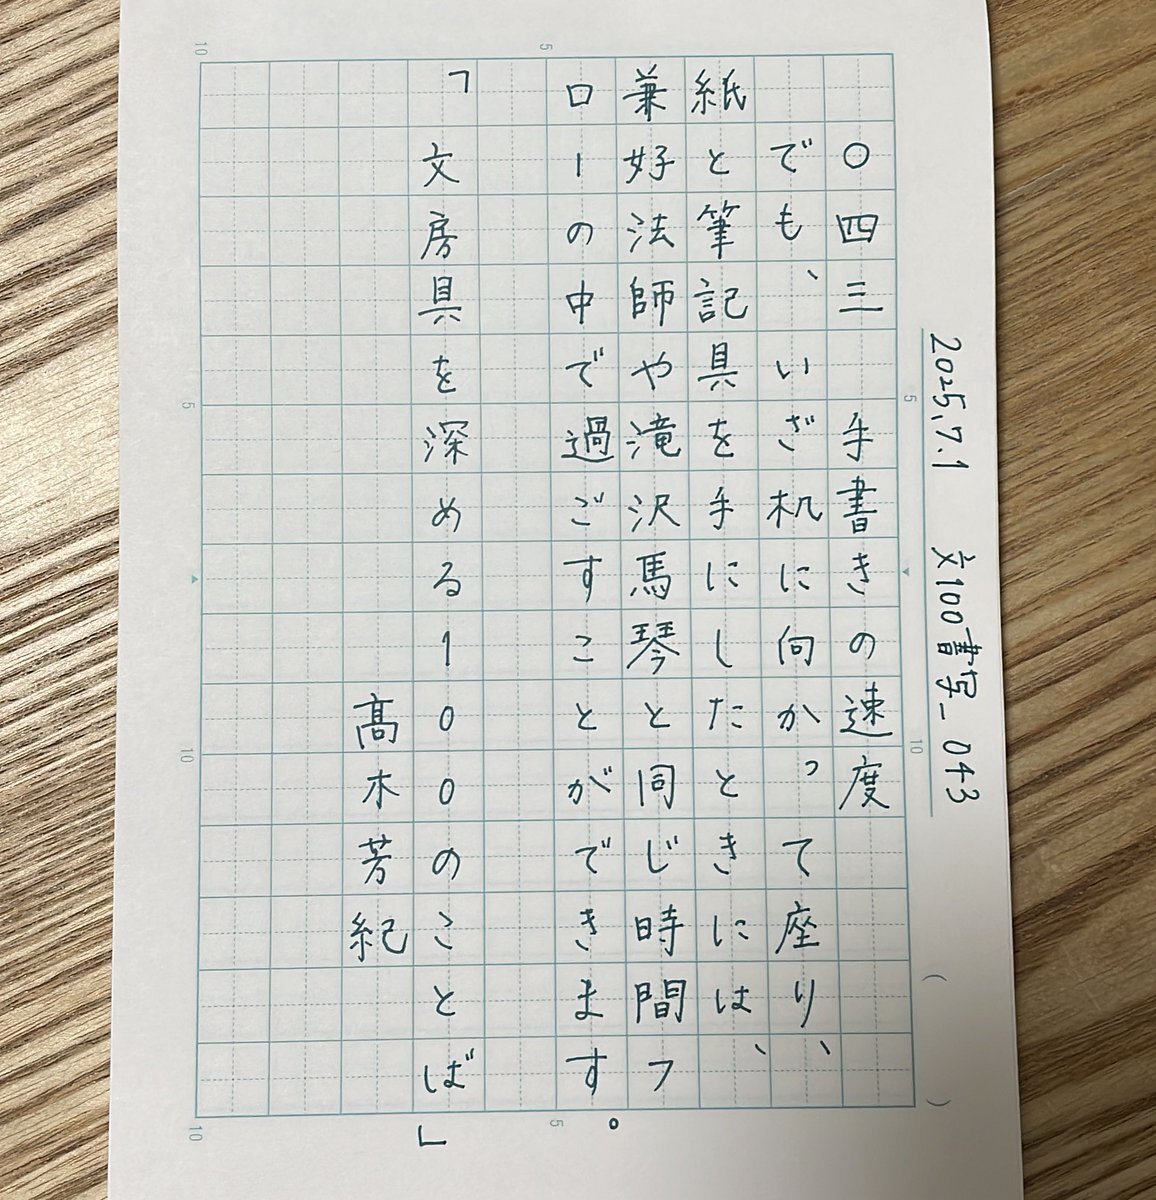 2025.7.1 文100書写_043
〇四三 手書きの速度
でも、いざ机に向かって座り、
紙と筆記具を手にしたときには、
兼好法師や滝沢馬琴と同じ時間フ
ローの中で過ごすことができます。
「文房具を深める100のことば」
髙木芳紀